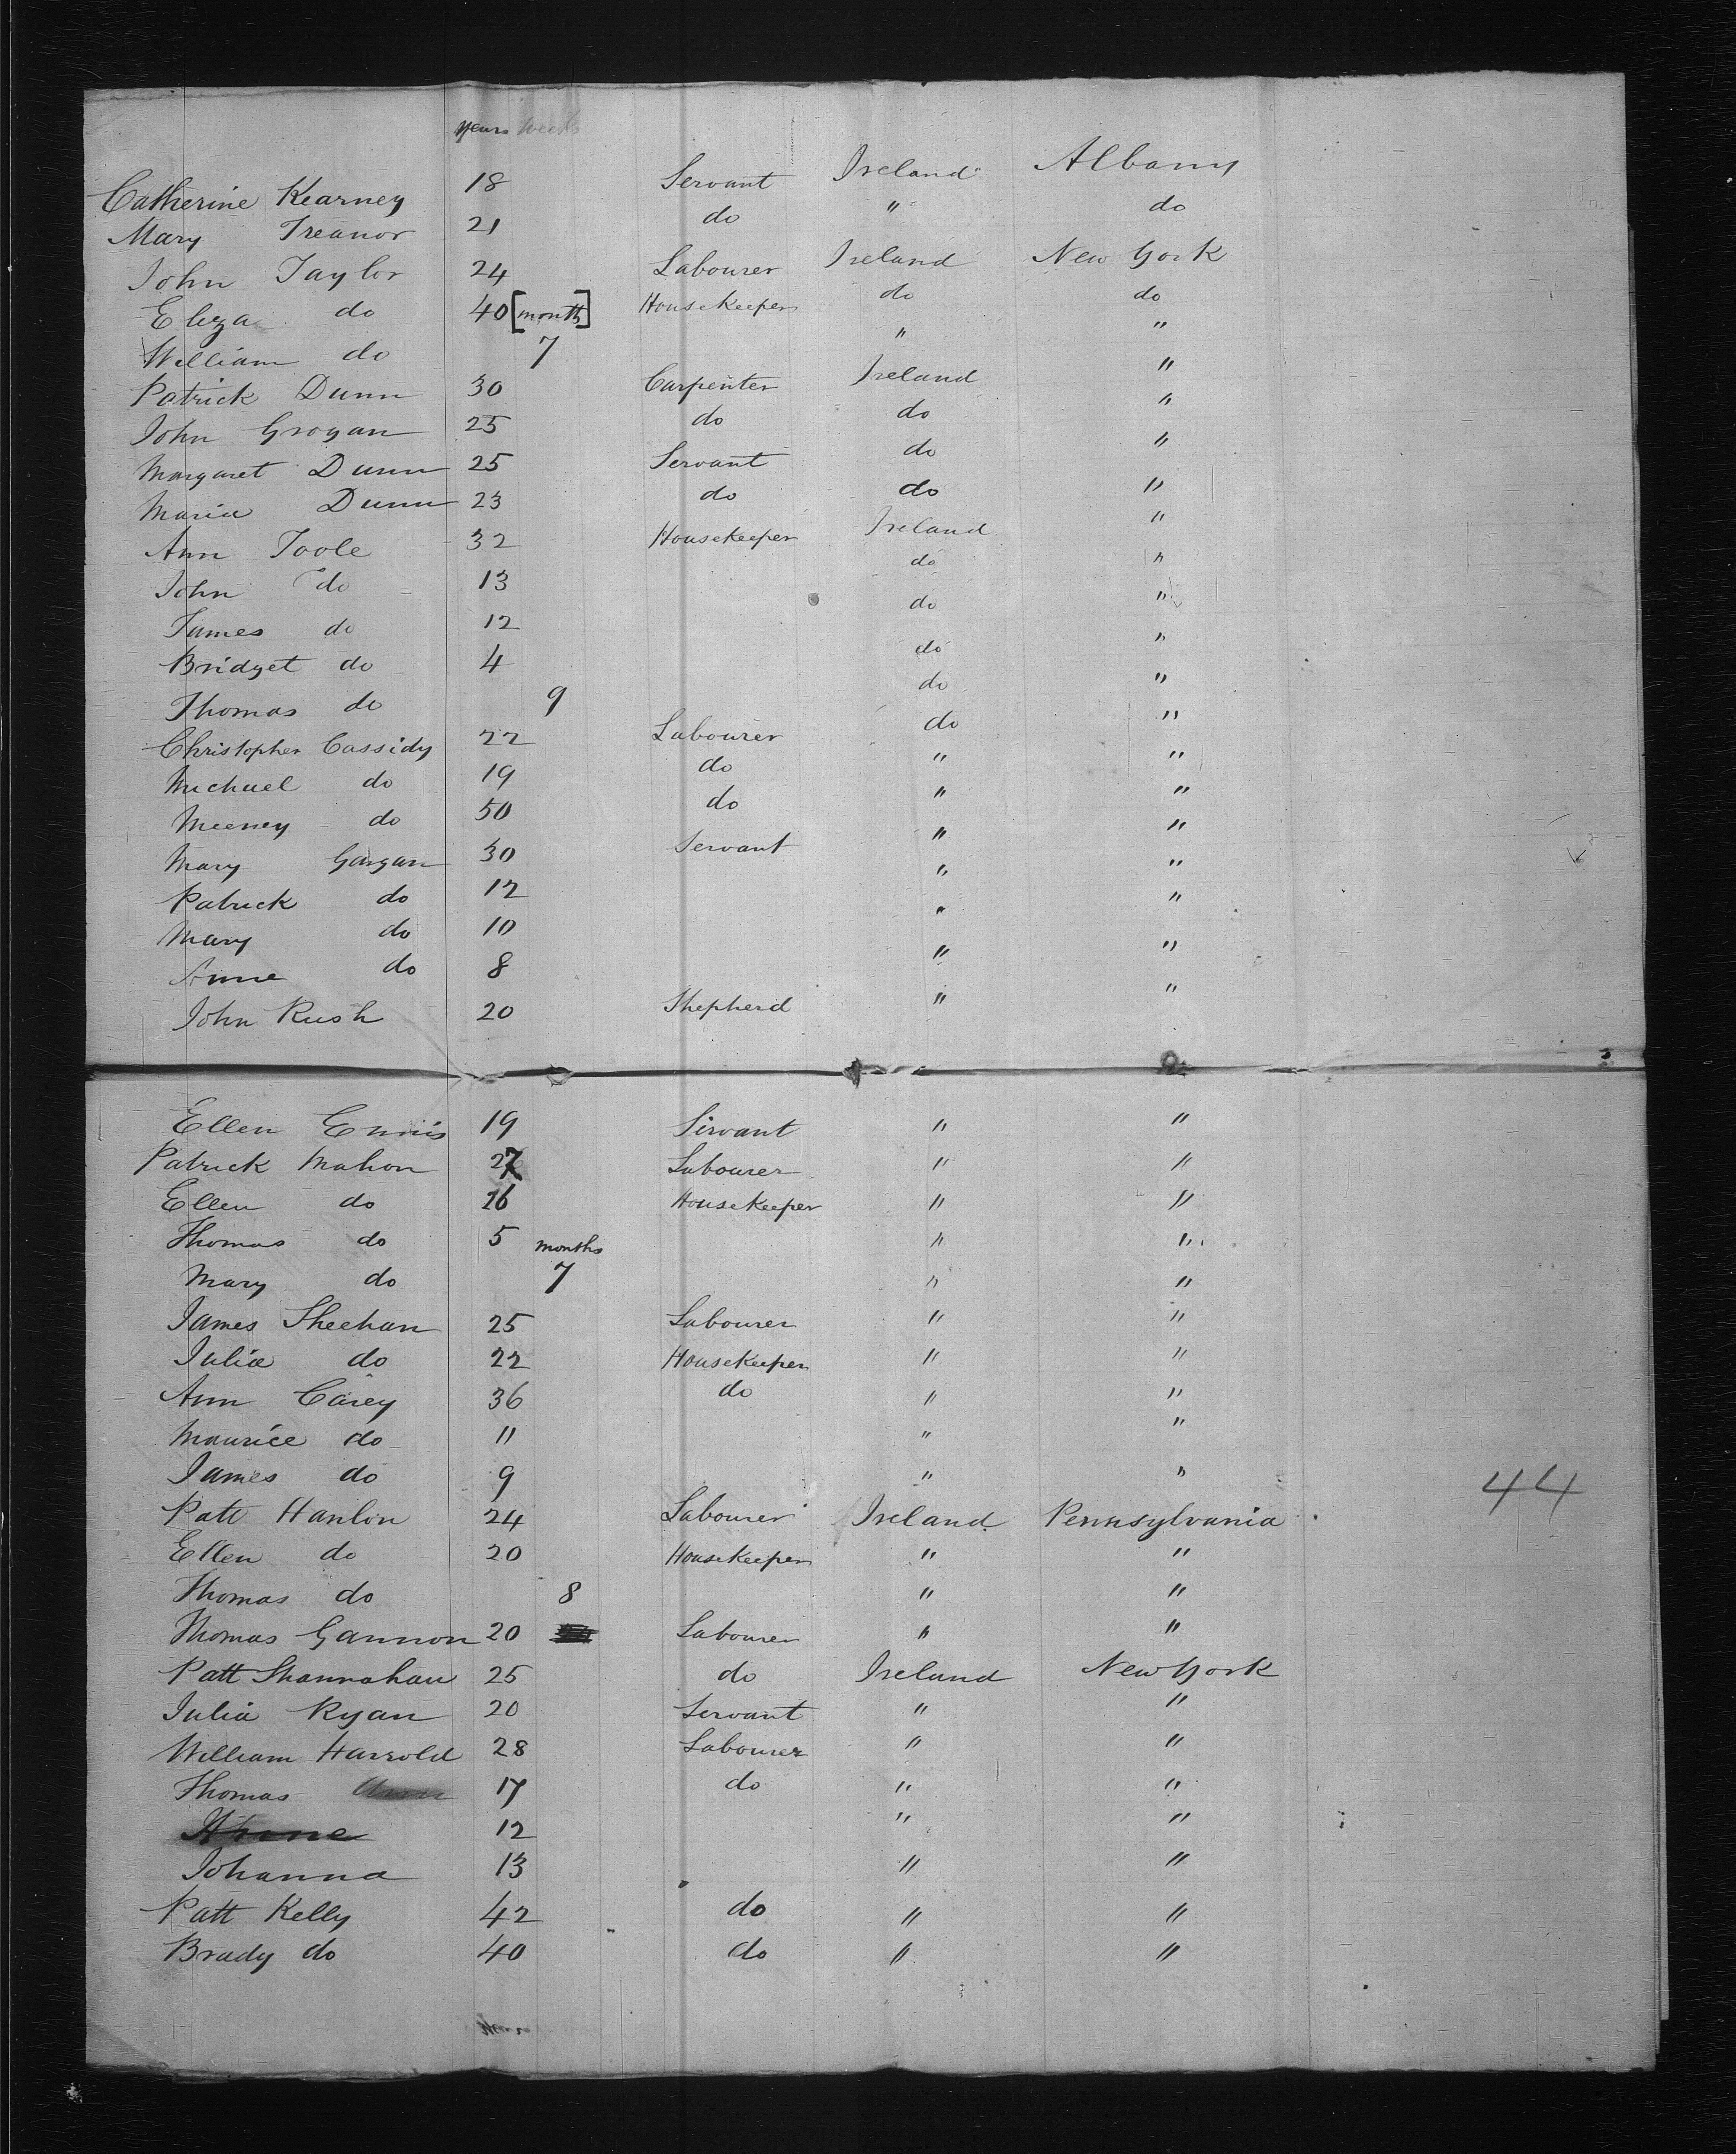 years weeks
Catherine Kearney 18 Servant Ireland Albany
Mary Treanor 21 do " do
John Taylor 24 Labourer Ireland New York
Eliza do 40 [months] Housekeeper do do
William do 7 " "
Patrick Dunn 30 Carpenter Ireland "
John Grogan 25 do do "
Margaret Dunn 25 Servant do "
Maria Dunn 23 do do "
Ann Toole 32 Housekeeper Ireland "
John do 13 do "
James do 12 do "
Bridget do 4 do "
Thomas do 9 do "
Christopher Cassidy 22 Labourer do "
Michael do 19 do " "
Meeney do 50 do " "
Mary Gargan 30 Servant " "
Patrick do 12 " "
Mary do 10 " "
Anne do 8 " "
John Rush 20 Shepherd " "
Ellen Ennis 19 Servant " "
Patrick Mahon 27 Labourer " "
Ellen do 26 Housekeeper " "
Thomas do 5 " "
months
Mary do 7 " "
James Sheehan 25 Labourer " "
Julia do 22 Housekeeper " "
Ann Carey 36 do " "
Maurice do 11 " "
James do 9 " "
44
Patt Hanlon 24 Labourer Ireland Pennsylvania
Ellen do 20 Housekeeper " "
Thomas do 8 " "
Thomas Gannon 20 Labourer " "
Patt Shannahan 25 do Ireland New York
Julia Ryan 20 Servant " "
William Harrold 28 Labourer " "
Thomas 17 do " "
12 " "
Johanna 13 " "
Patt Kelly 42 do " "
Brady do 40 do " "